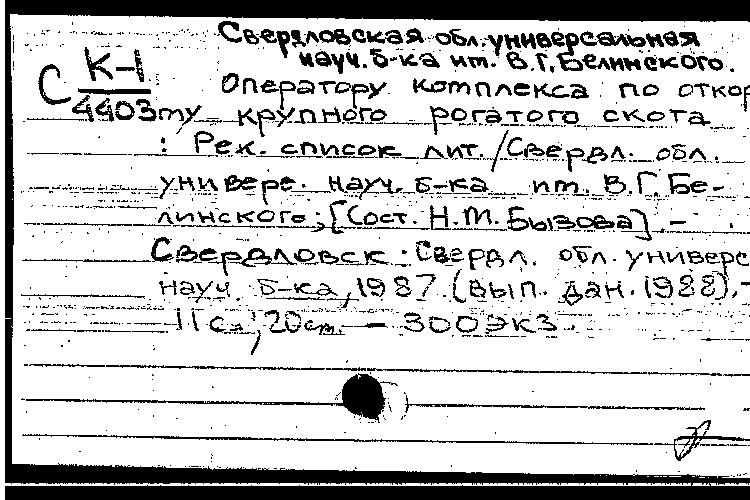 Свердловская обл. универсальная
науч. б-ка им. В.Г. Белинского.
С К-1
4403
Оператору комплекса по откор
му крупного рогатого скота
: Рек. список лит. / Свердл. обл.
универс. науч. б-ка им. В.Г. Бе-
линского; [Сост. Н.М. Бызова]. –
Свердловск : Свердл. обл. универс
науч. б-ка, 1987. (вып. дан. 1988). –
11 с.; 20 см. – 300 экз.